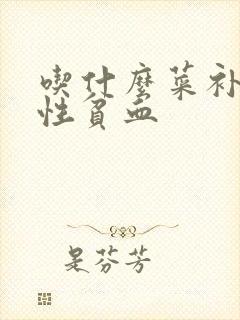 喫什麼菜补
性貧血
是芬芳